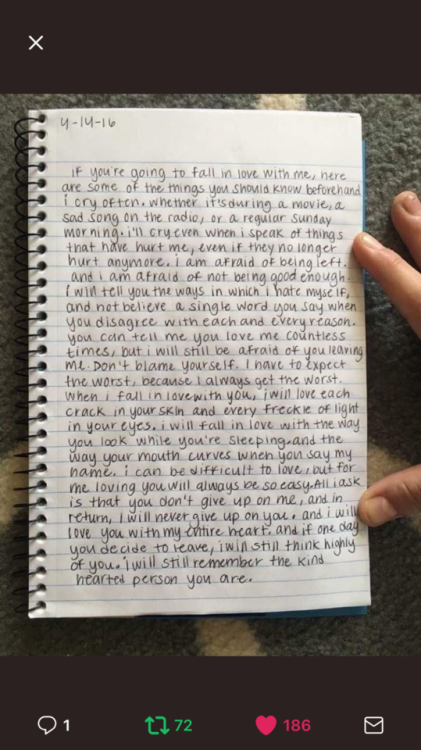 4-14-16
if you're going to fall in love with me, here
are some of the things you should know beforehand
i cry often. whether it's during a movie, a
sad song on the radio, or a regular sunday
morning. i'll cry even when i speak of things
that have hurt me, even if they no longer
hurt anymore. i am afraid of being left.
and i am afraid of not being good enough.
i will tell you the ways in which i hate myself,
and not believe a single word you say when
you disagree with each and every reason.
you can tell me you love me countless
times, but i will still be afraid of you leaving
me. Don't blame yourself. I have to expect
the worst, because I always get the worst.
when i fall in love with you, i will love each
crack in your skin and every freckle of light
in your eyes. i will fall in love with the way
you look while you're sleeping. and the
way your mouth curves when you say my
name. i can be difficult to love, but for
me loving you will always be so easy. All i ask
is that you don't give up on me, and in
return, i will never give up on you. and i will
love you with my entire heart. and if one day
you decide to leave, i will still think highly
of you. i will still remember the kind
hearted person you are.
1 72 186